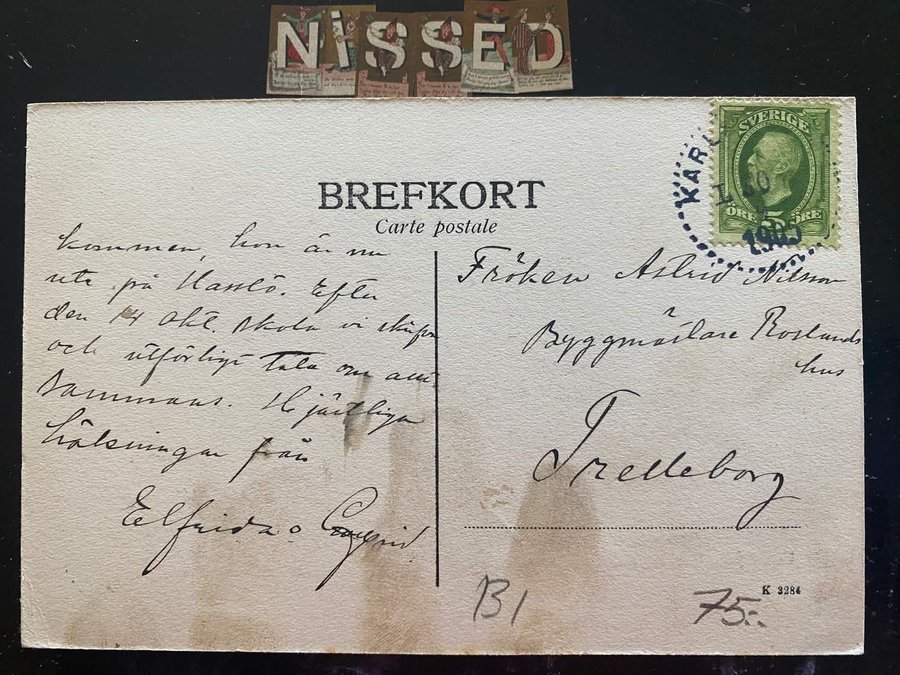 NISSED
BREFKORT
Carte postale
SVERIGE
KARL
5
ÖRE ÖRE
1905
kommen, hon är nu
ute på Hasslö. Efter
den 14 Okt. skola vi
och utförligt tala om allt
sammans. Hjärtliga
hälsningar från
Elfrida o
Fröken Astrid Nilsson
Byggmästare Roslunds
hus
Trelleborg
B1
75:-
K 3284